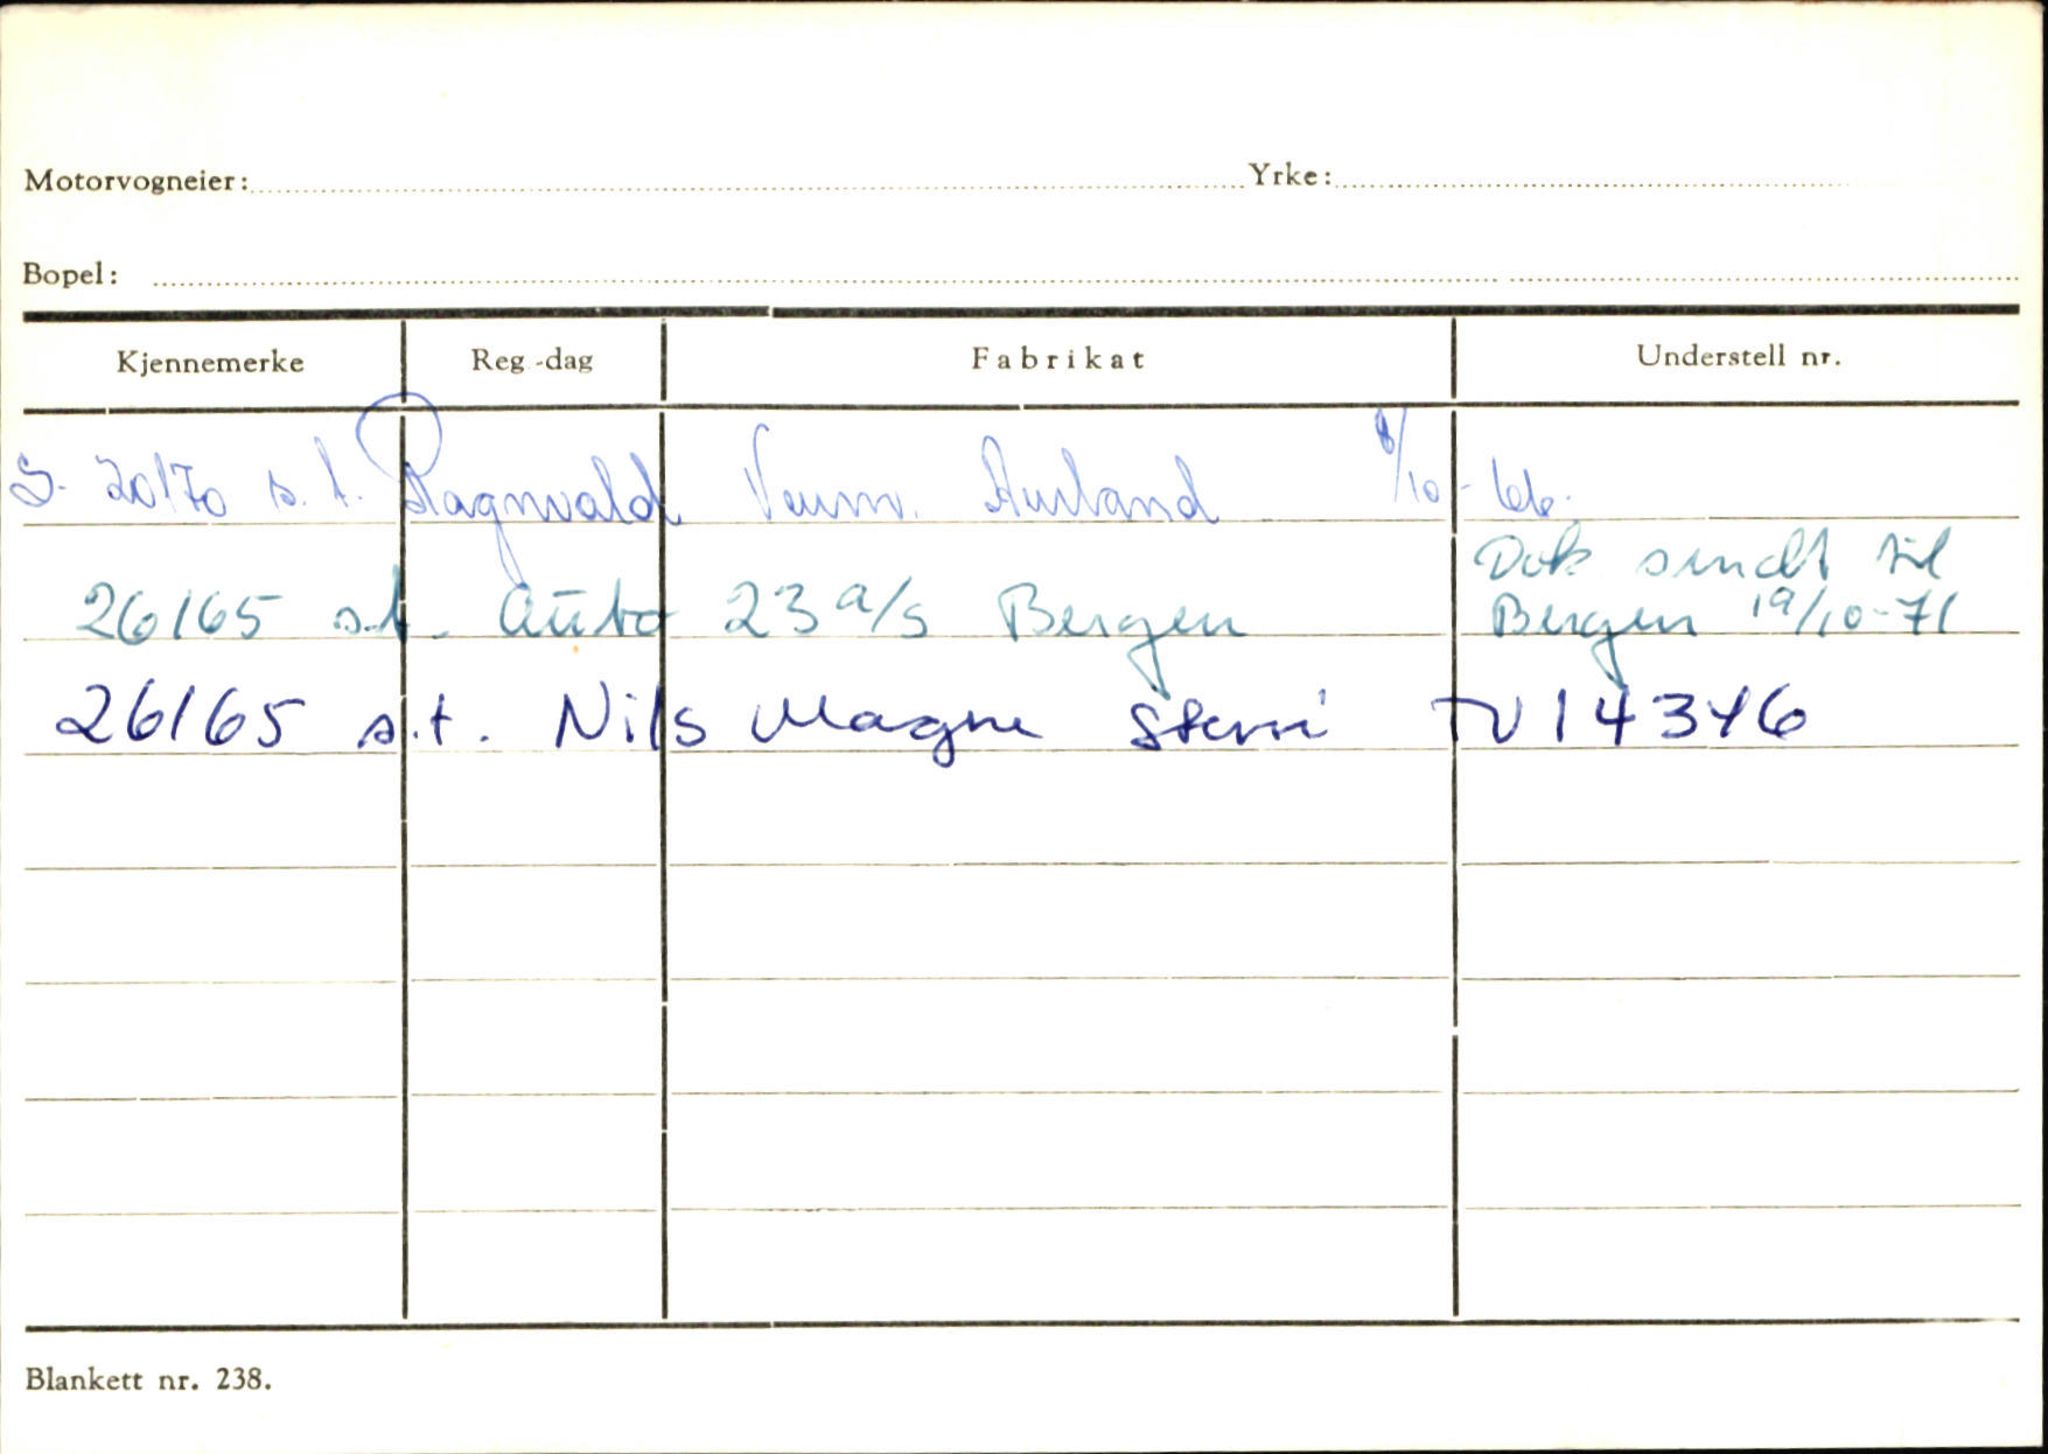 Motorvogneier: Yrke:
Bopel:
Kjennemerke Reg.-dag Fabrikat Understell nr.
S. 20170 s.t. Ragnvald Aurland /10-66.
Dok sendt til
26165 s.t. Auto 23 a/s Bergen Bergen 19/10-71
26165 s.t. Nils Magne TV 14346
Blankett nr. 238.